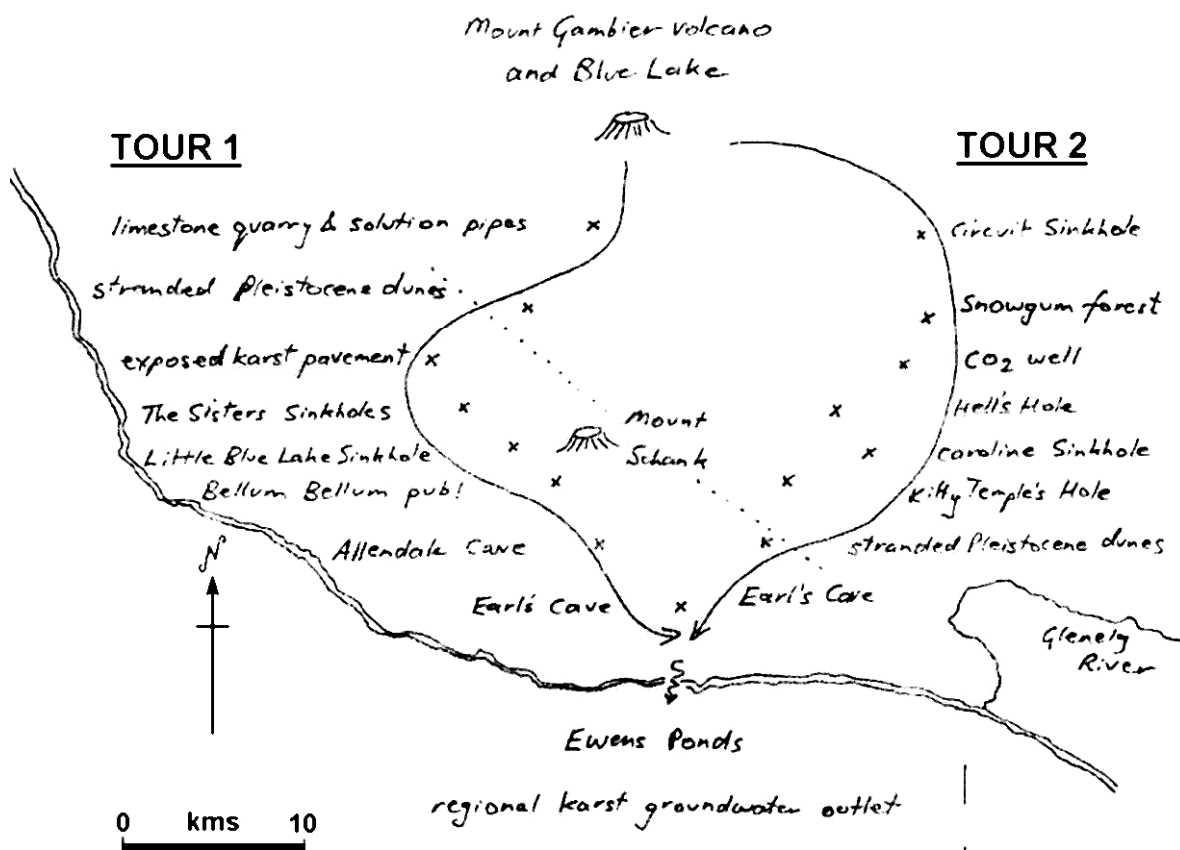 Mount Gambier volcano
and Blue Lake
TOUR 1
TOUR 2
limestone quarry & solution pipes
stranded Pleistocene dunes
exposed karst pavement
The Sisters Sinkholes
Little Blue Lake Sinkhole
Bellum Bellum pub!
Allendale Cave
Earl's Cave
Mount
Schank
Circuit Sinkhole
Snowgum forest
CO2 well
Hell's Hole
Caroline Sinkhole
Kitty Temple's Hole
stranded Pleistocene dunes
Earl's Cave
Glenelg
River
N
Ewens Ponds
regional karst groundwater outlet
0 kms 10